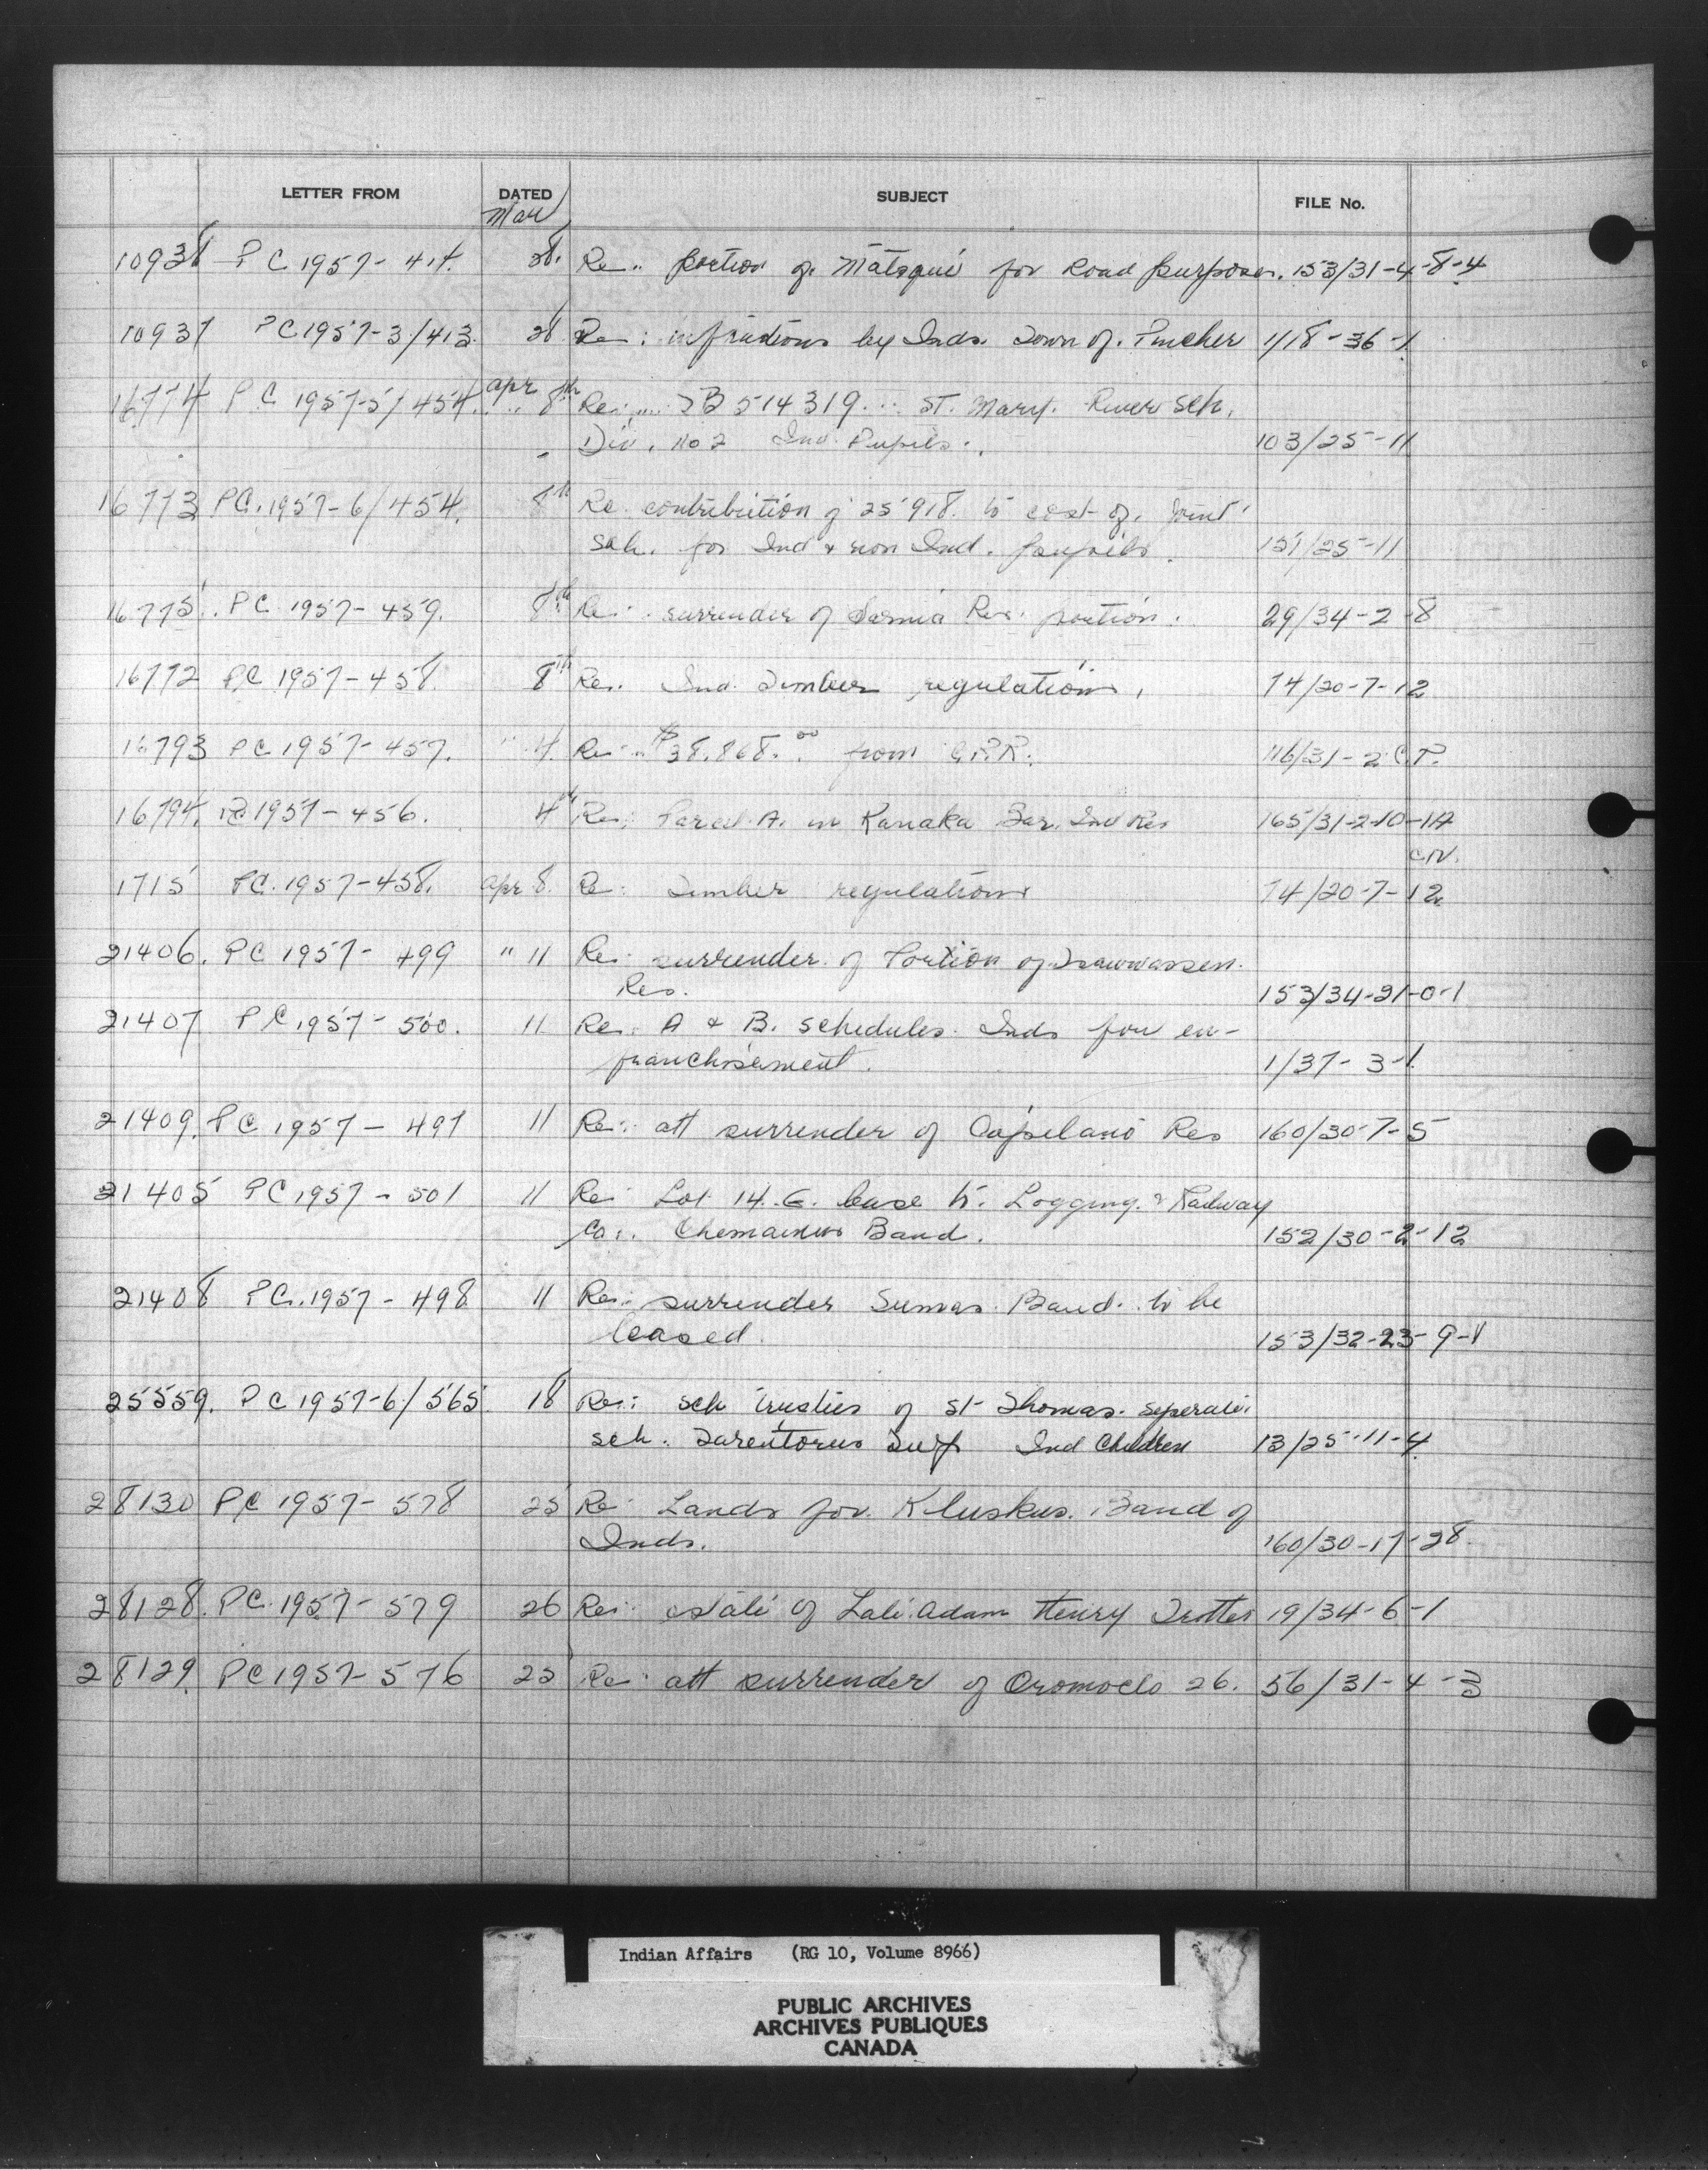 LETTER FROM DATED SUBJECT FILE No.
Mar
10938 P C 1957 - 414. 28. Re.. portion of Matsqui for Road purposes. 153/31-4-8-4
10937 P C 1957-3/413. 28 Re: infractions by Inds. Town of. Pincher 1/18-36-1
16774 P C 1957-5/454. Apr 8th Re: TB 514319... St. Mary. River Sch.
Div. No 2 Ind. Pupils. 103/25-11
16773 PC. 1957-6/454. 8th Re contribution of 25 918. to cost of. joint
Sch. for Ind & non Ind. pupils. 151/25-11
16775. PC 1957-459. 8th Re: surrender of Sarnia Res. portion. 29/34-2-8
16772 PC 1957-458. 8th Re: Ind. Timber regulations. 74/20-7-12
16793 PC 1957-457. " 4. Re: $38.868.00 from 116/31-2
16794. PC 1957-456. 4th Re: Parcel A. in Kanaka Bar. Ind Res 165/31-2-10-1A
C.N.
1715 PC. 1957-458. Apr 8. Re: Timber regulations 74/20-7-12
21406. PC 1957-499 " 11 Re: surrender of Portion of Tsawwassen.
Res. 153/34-21-0-1
21407 PC 1957-500. 11 Re: A & B. schedules. Inds for en-
franchisement. 1/37-3-1
21409. PC 1957-497 11 Re: att surrender of Capilano Res 160/30-7-5
21405 PC 1957-501 11 Re: Lot 14. G. lease to. Logging. & Railway
Co.. Chemainus Band. 152/30-2-12
21408 PC. 1957-498 11 Re: surrender Sumas. Band. to be
leased. 153/32-23-9-1
25559. PC 1957-6/565 18 Re: Sch trustees of St Thomas. Seperate.
Sch. Tarentorus Twp Ind Children 13/25-11-4
28130 PC 1957-578 25 Re: Lands for. Kluskus. Band of
Inds. 160/30-17-28
28128. PC. 1957-579 26 Re: estate of Late. Adam Henry Trotter 19/34-6-1
28129. PC 1957-576 25 Re: att surrender of Oromocto 26. 56/31-4-3
Indian Affairs (RG 10, Volume 8966)
PUBLIC ARCHIVES
ARCHIVES PUBLIQUES
CANADA